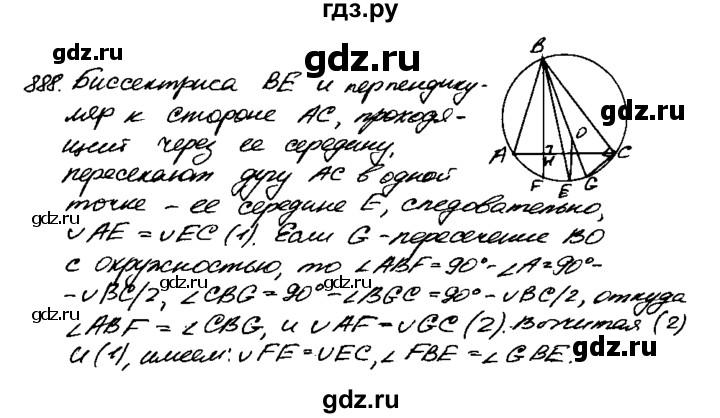 гдз.ру
gdz.ru
888. Биссектриса BE и перпендику-
ляр к стороне AC, проходя-
щий через ее середину,
пересекают дугу AC в одной
точке - ее середине E, следовательно,
∪AE = ∪EC (1). Если G - пересечение BO
с окружностью, то ∠ABF = 90° - ∠A = 90° -
- ∪BC/2, ∠CBG = 90° - ∠BGC = 90° - ∪BC/2, откуда
∠ABF = ∠CBG, и ∪AF = ∪GC (2). Вычитая (2)
и (1), имеем: ∪FE = ∪EC, ∠FBE = ∠GBE.
B
O
A
H
C
F
E
G
gdz.ru
gdz.ru
gdz.ru
gdz.ru
gdz.ru
gdz.ru
gdz.ru
gdz.ru
gdz.ru
gdz.ru
gdz.ru